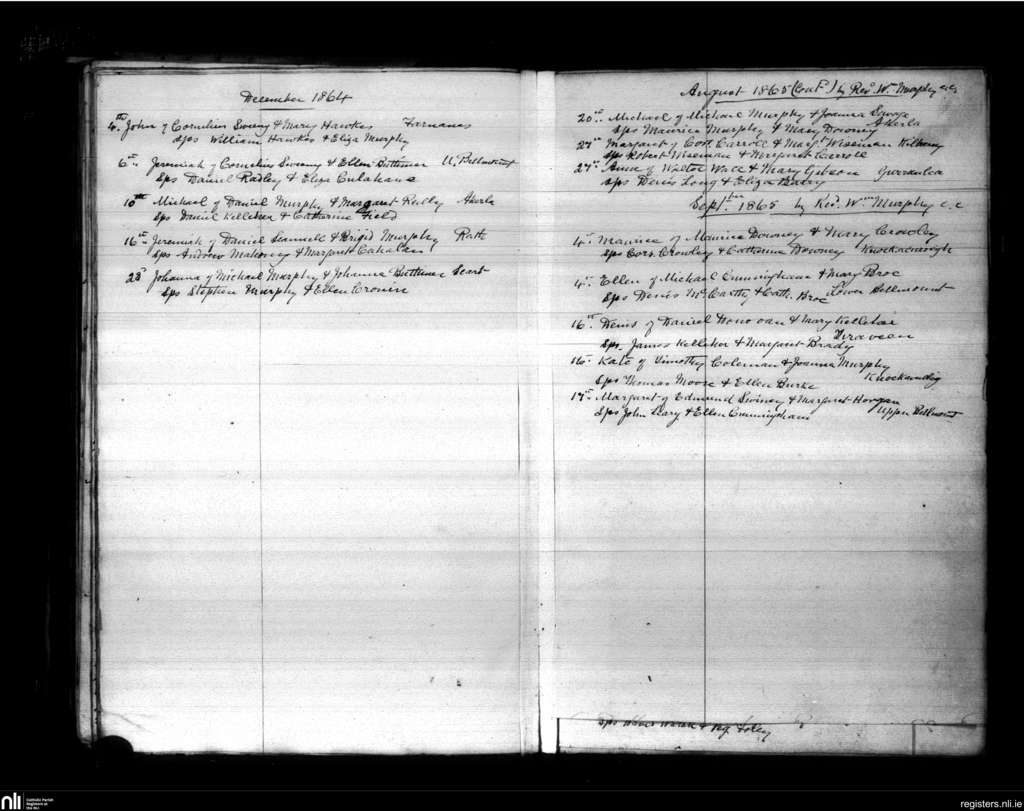 December 1864
4th John of Cornelius Sweeny & Mary Hawkes Farnanes
Sps William Hawkes & Eliza Murphy
6th Jeremiah of Cornelius Sweeny & Ellen Buttimer U. Bellmount
Sps Daniel Radley & Eliza Culahane
10th Michael of Daniel Murphy & Margaret Reilly Aherla
Sps Daniel Kelleher & Catharine Field
16th Jeremiah of Daniel & Brigid Murphy Rath
Sps Andrew Mahoney & Margaret Cahalan
28 Johanna of Michael Murphy & Johanna Buttimer Scart
Sps Stephen Murphy & Ellen Cronin
August 1865 (Cont) by Revd Wm Murphy c.c.
20th Michael of Michael Murphy & Joanna George
Aherla
Sps Maurice Murphy & Mary Downey
27th Margaret of Cors Carroll & Margt Wiseman
Sps Robert Wiseman & Margaret Carroll
27th Anna of Walter Wall & Mary Gibson
Sps Denis Long & Eliza Barry
Septber 1865 by Revd Wm Murphy c.c
4th Maurice of Maurice Downey & Mary Crowley
Sps Cors Crowley & Catherine Downey
4th Ellen of Michael Cunningham & Mary Broe
Sps Denis McCarthy & Cath. Broe Lower Bellmount
16th Denis of Daniel Donovan & Mary Kelleher
Sps James Kelleher & Margaret Brady
16th Kate of Timothy Coleman & Joanna Murphy
Sps Thomas Moore & Ellen Burke
17th Margaret of Edmund Swiney & Margaret Horgan
Sps John Leary & Ellen Cunningham Upper Bellmount
Sps & Foley
nli
Catholic Parish
Registers at
the NLI
registers.nli.ie